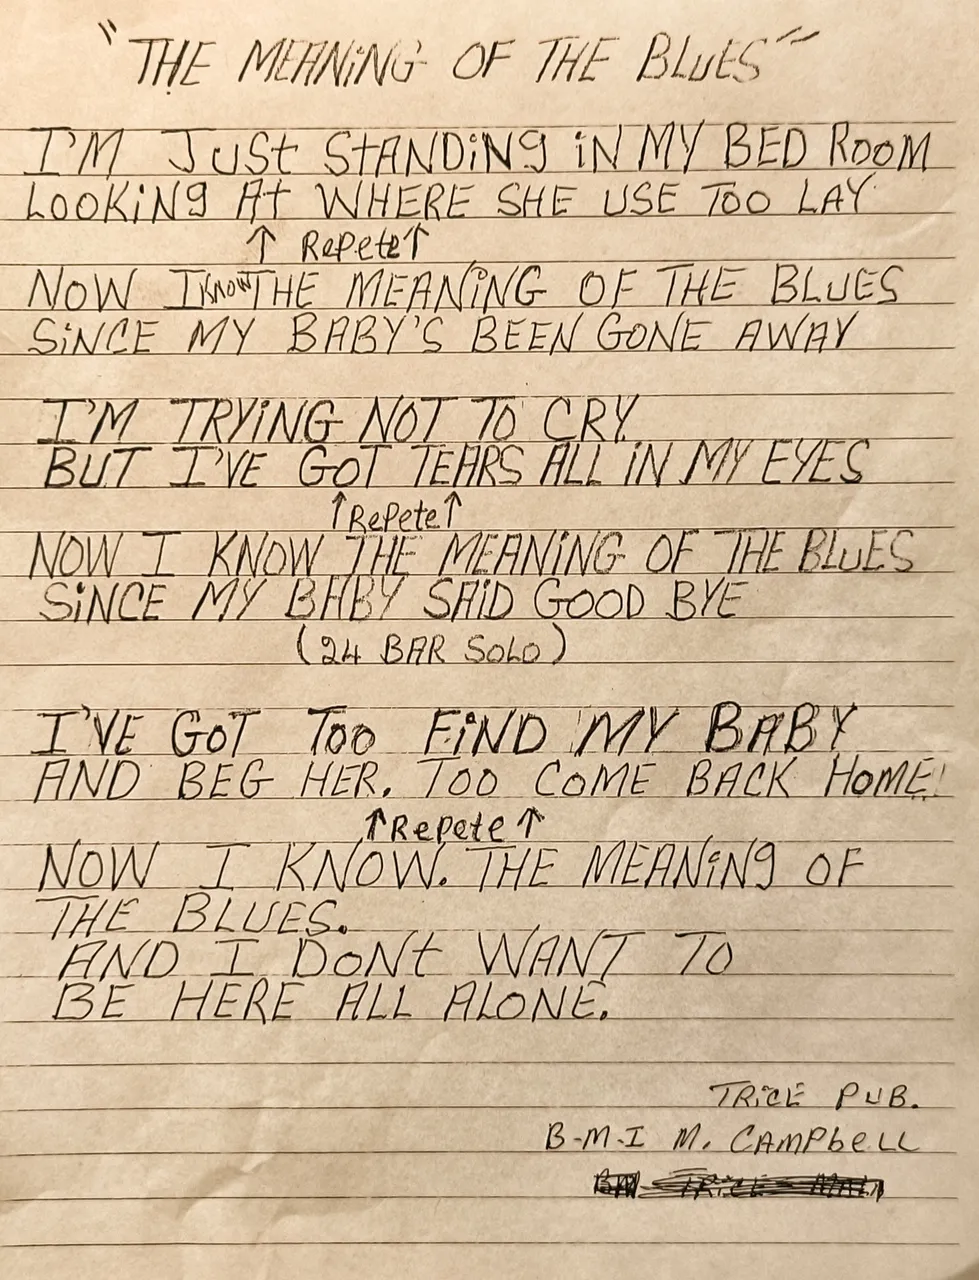 "THE MEANiNG OF THE BLUES"
I'M JUSt StANDiNg iN MY BED ROOM
LOOKiNg At WHERE SHE USE TOO LAY
↑ RePete ↑
NOW I KNOW THE MEANiNG OF THE BLUES
SiNCE MY BABY'S BEEN GONE AWAY
I'M TRYiNG NOT TO CRY
BUT I'VE GOT TEARS ALL IN MY EYES
↑ RePete ↑
NOW I KNOW THE MEANiNG OF THE BLUES
SiNCE MY BABY SAiD GOOD BYE
(24 BAR SOLO)
I'VE GOT TOO FiND MY BABY
AND BEG HER. TOO COME BACK HOME!
↑ RePete ↑
NOW I KNOW. THE MEANiNg OF
THE BLUES.
AND I DONt WANT TO
BE HERE ALL ALONE.
TRiCE PUB.
B-M-I M. CAMPbeLL